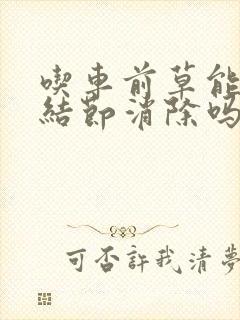 喫車前草能
結節消除嗎
可否許我清夢